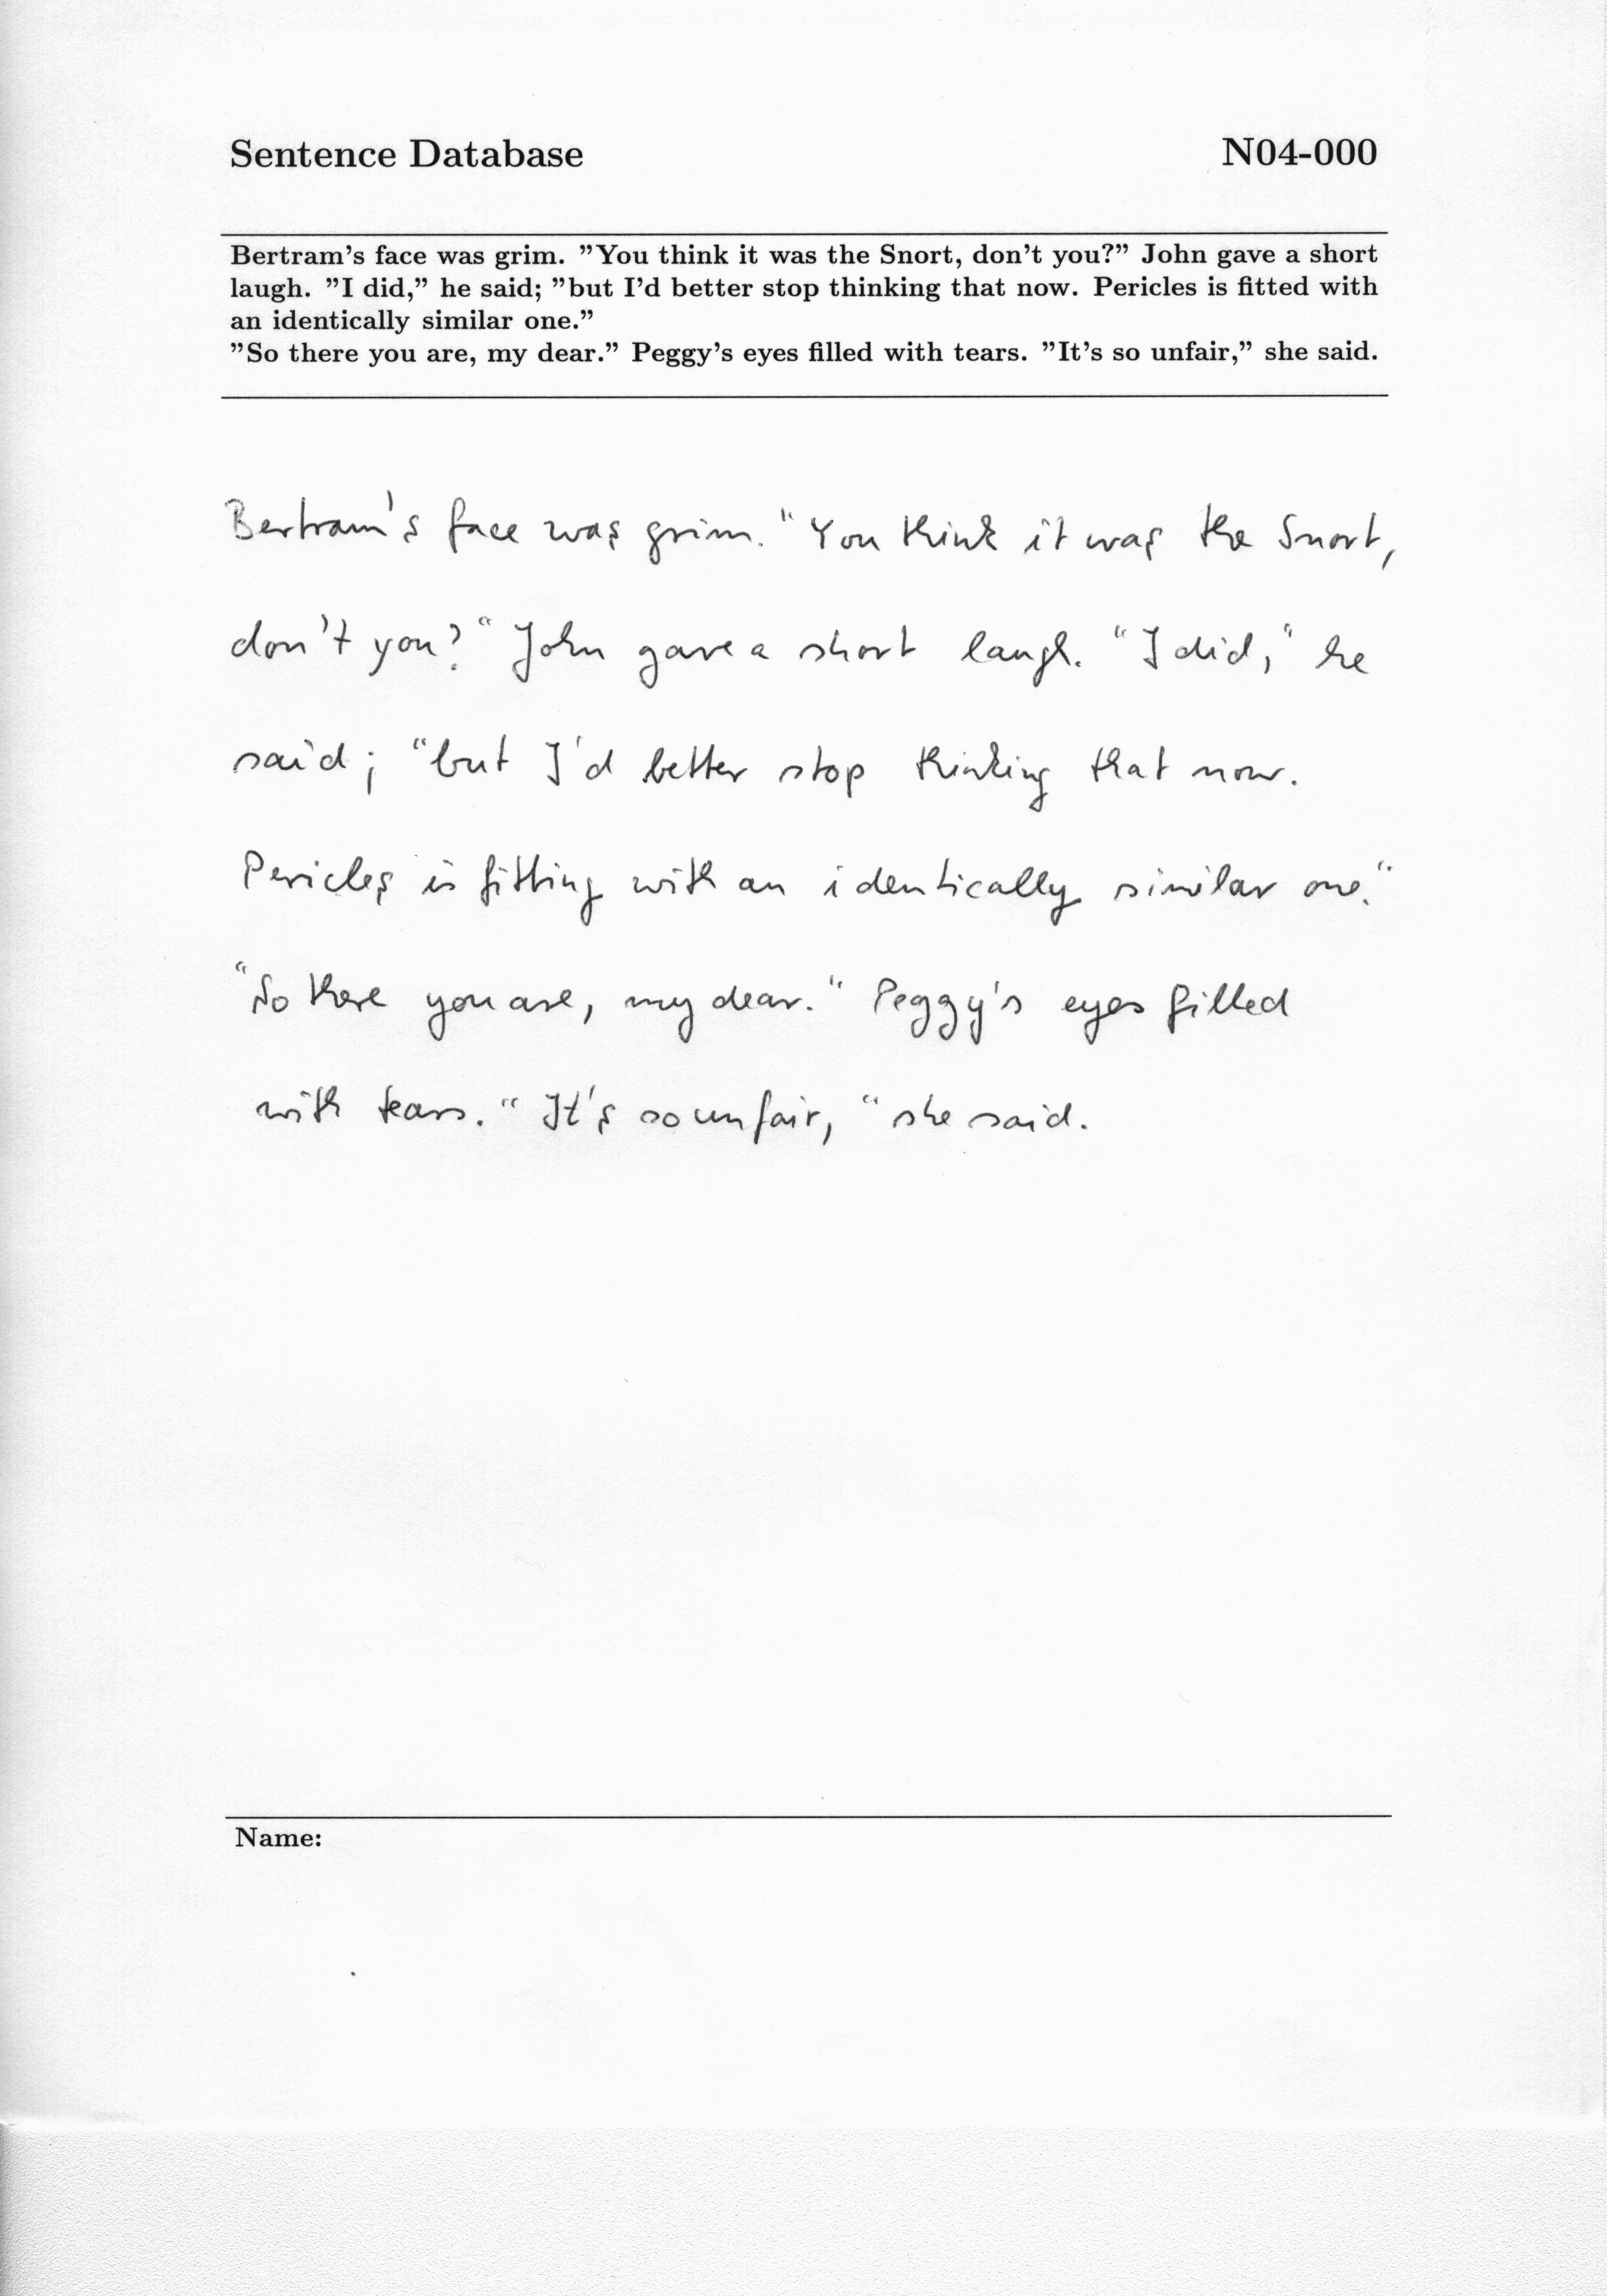 Sentence Database N04-000
Bertram's face was grim. "You think it was the Snort, don't you?" John gave a short
laugh. "I did," he said; "but I'd better stop thinking that now. Pericles is fitted with
an identically similar one."
"So there you are, my dear." Peggy's eyes filled with tears. "It's so unfair," she said.
Bertram's face was grim. "You think it was the Snort,
don't you?" John gave a short laugh. "I did," he
said; "but I'd better stop thinking that now.
Pericles is fitting with an identically similar one."
"So there you are, my dear." Peggy's eyes filled
with tears. "It's so unfair, "she said.
Name: